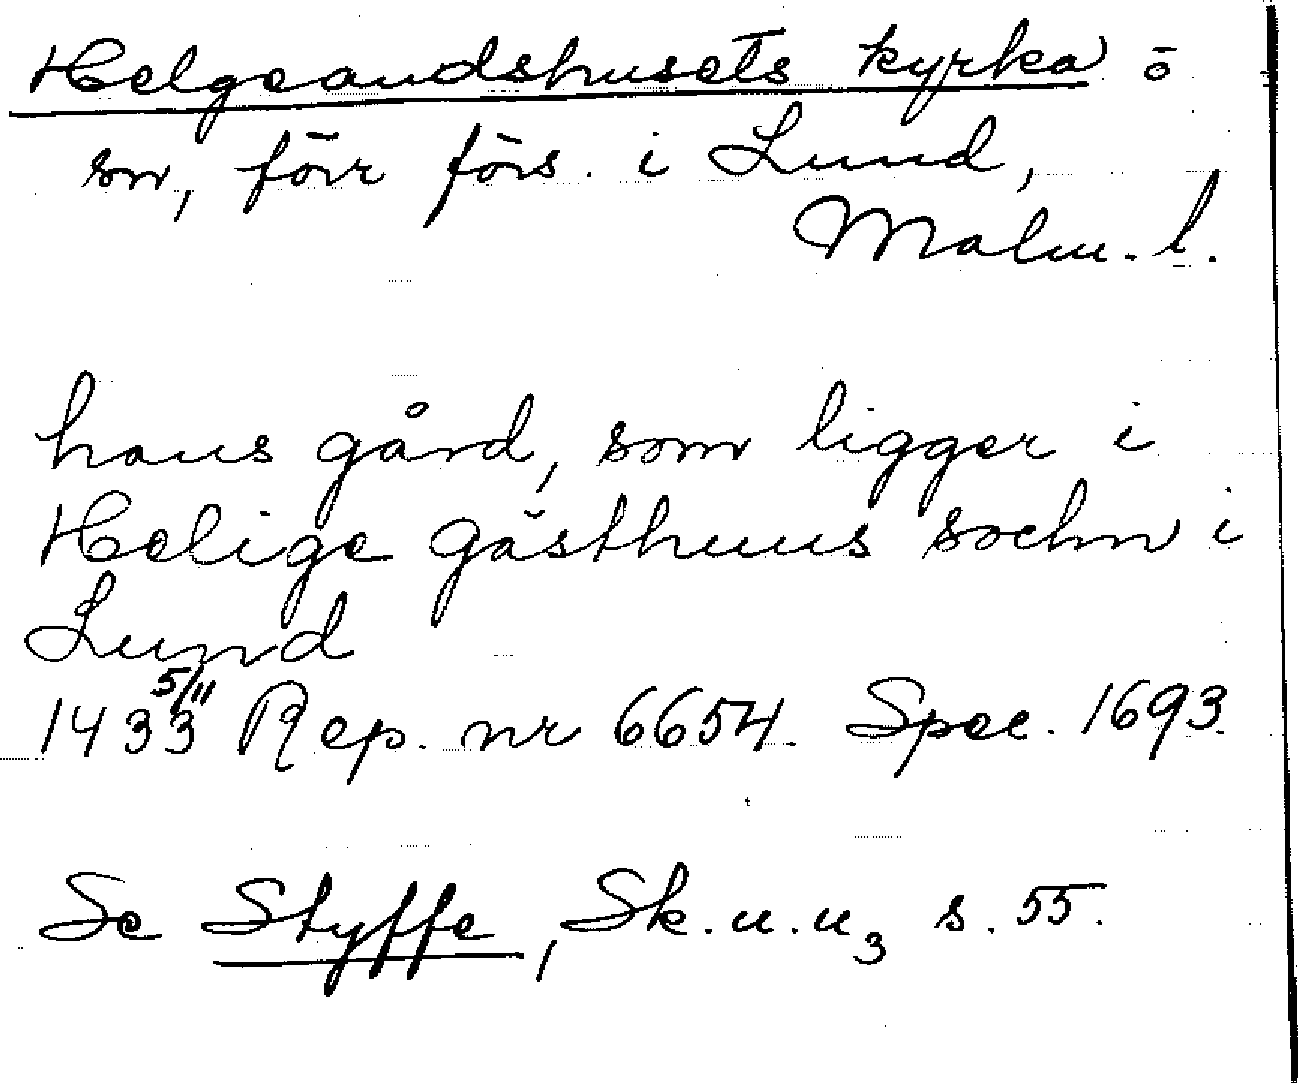 Helgeandshusets kyrka ö
sn, förr förs. i Lund,
Malm. l.
hans gård, som ligger i
Helige gästhuus sochn i
Lund
1433 5/11 Rep. nr 6654. Spec. 1693.
Se Styffe, Sk. u. u3 s. 55.